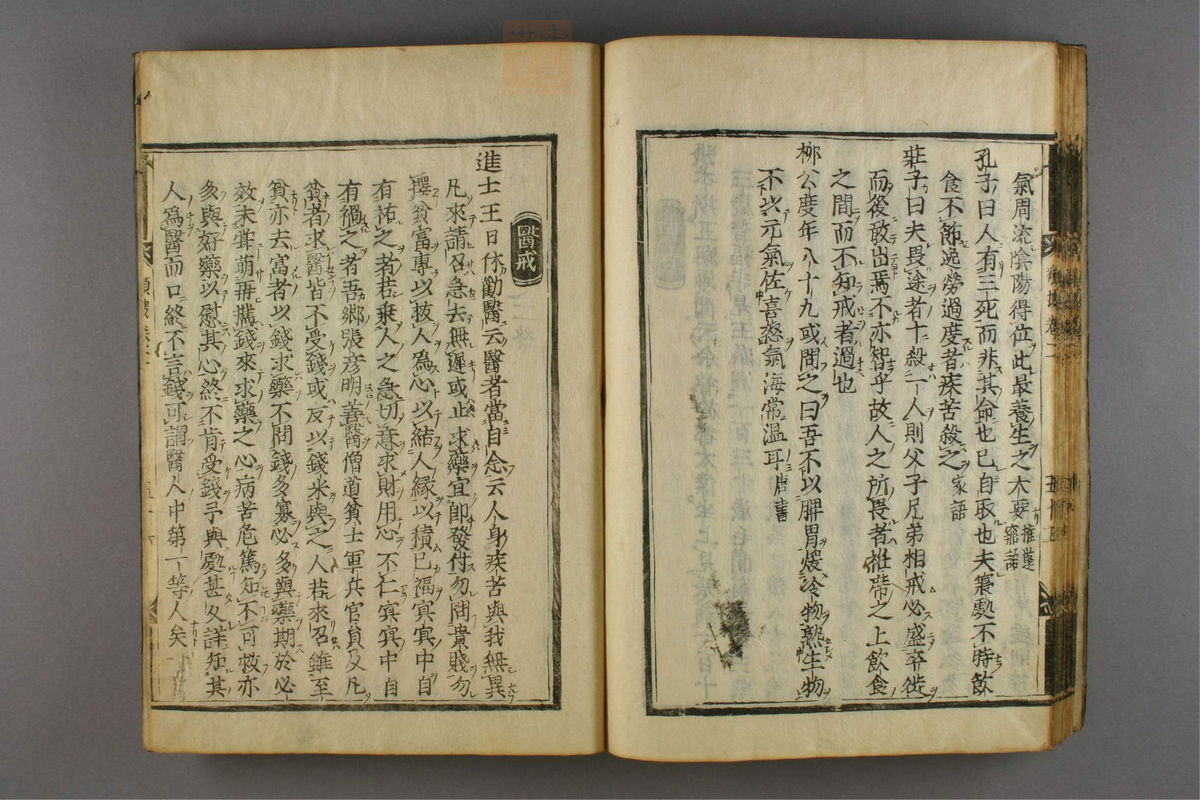 氣周流陰陽得位此最養生之大要 推蓬寤語
孔子曰人有三死而非其命也已自取也夫寢處不時飲
食不節逸勞過度者疾苦殺之 家語
莊子曰夫畏途者十殺一人則父子兄弟相戒必盛卒徒
而後敢出焉不亦智乎故人之所畏者袵席之上飲食
之間而不知戒者過也
柳公度年八十九或問之曰吾不以脾胃煖冷物熟生物
不以元氣佐喜怒氣海常温耳 唐書
醫戒
進士王日休勸醫云醫者當自念云人身疾苦與我無異
凡來請召急去無遲或止求藥宜即發付勿問貴賤勿
擇貧富專以救人為心以結人縁以積已福冥冥中自
有祐之者若乗人之急切意求財用心不仁冥冥中自
有禍之者吾郷張彦明善醫僧道貧士軍兵官員及凡
貧者求醫皆不受錢或反以錢米與之人若來召雖至
貧亦去富者以錢求藥不問錢多寡必多與藥期於必
效未甞萌再攜錢來求藥之心病苦危篤知不可救亦
多與好藥以慰其心終不肯受錢予與處甚久詳知其
人為醫而口終不言錢可謂醫人中第一等人矣一